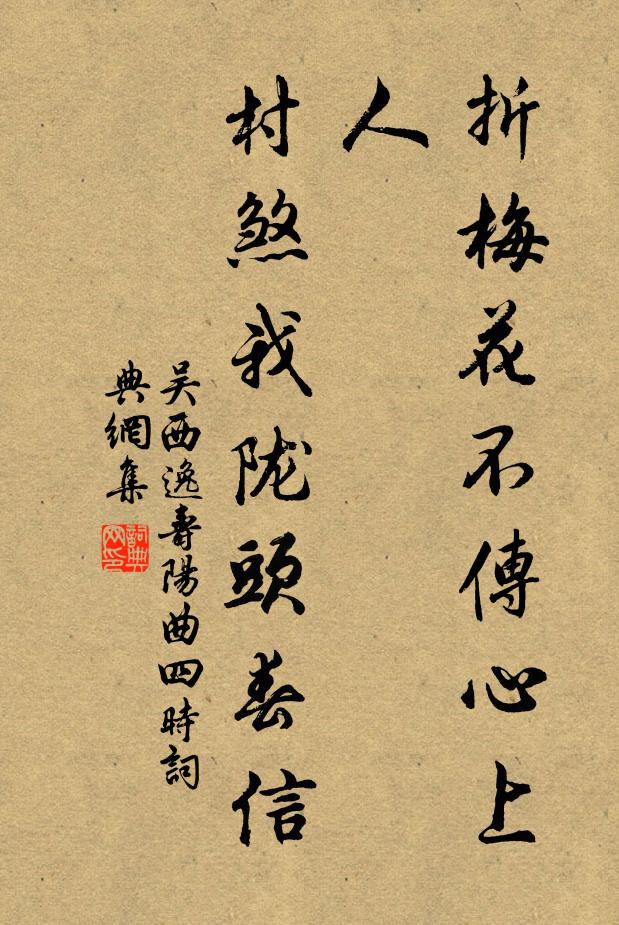 折梅花不傳心上
人
村煞我陇頭春信
吴西逸壽陽曲四時詞
典網集
詞典
网印